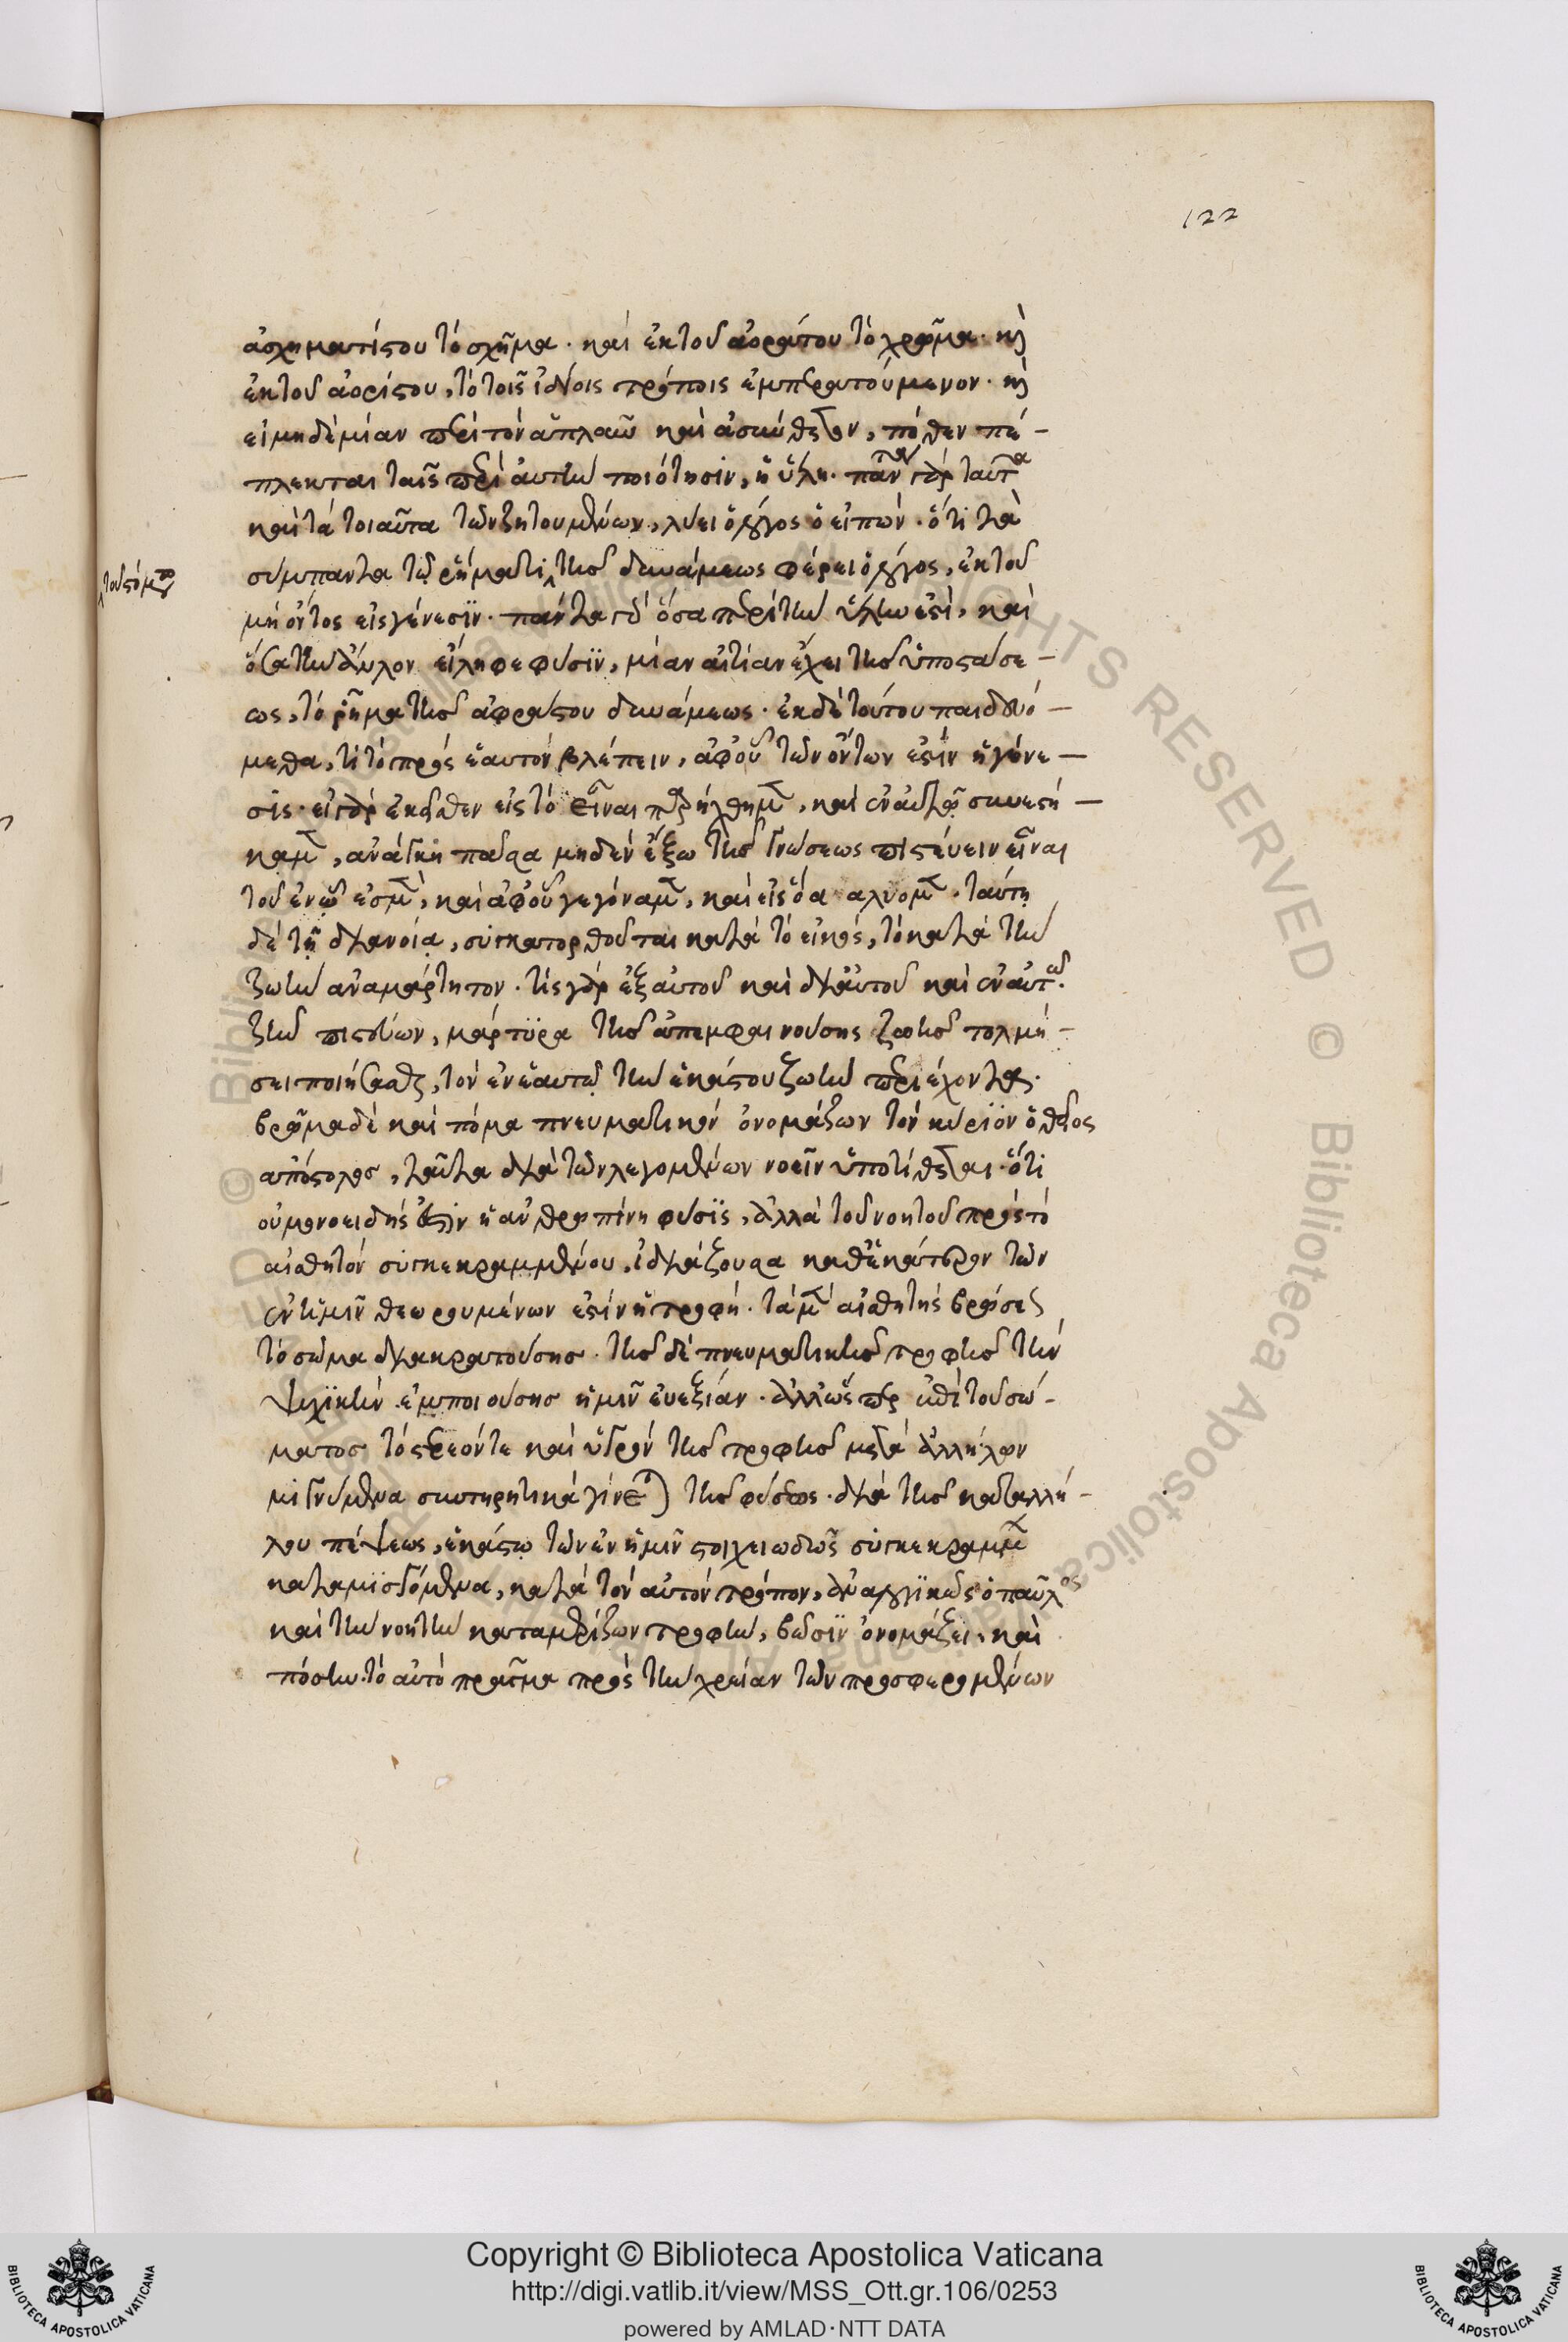 122
ἀσχηματίστου τὸ σχῆμα· καὶ ἐκ τοῦ ἀοράτου τὸ χρῶμα· κỳ
ἐκ τοῦ ἀορίστου, τὸ τοῖς ἰδίοις τρόποις ἐμπερατούμενον· κỳ
εἰ μηδεμίαν περὶ τὸν ἁπλοῦν καὶ ἀσύνθετον, πόθεν πέ-
πλεκται ταῖς περὶ αὐτὴν ποιότησιν, ἡ ὕλη· πάντα γὰρ ταῦτα
καὶ τὰ τοιαῦτα τῶν ζητουμένων, λύει ὁ λόγος ὁ εἰπών· ὅτι τὰ
σύμπαντα τῷ ῥήματι τῆς δυνάμεως φέρει ὁ λόγος, ἐκ τοῦ
μὴ ὄντος εἰς γένεσιν· πάντα γὰρ ὅσα περὶ τὴν ὕλην ἐστὶ, καὶ
ὅσα τὴν ἄυλον εἴληφε φύσιν, μίαν αἰτίαν ἔχει τῆς ὑποστάσε-
ως, τὸ ῥῆμα τῆς ἀφράστου δυνάμεως· ἐκ δὲ τούτου παιδευό-
μεθα, τί τὸ πρὸς ἑαυτὸν βλέπειν, ἀφ' οὗ τῶν ὄντων ἐστὶν ἡ γένε-
σις· εἰ γὰρ ἐκεῖθεν εἰς τὸ εἶναι παρήλθημεν, καὶ ἐν αὐτῷ συνεστή-
καμεν, ἀνάγκη πᾶσα μηδὲν ἔξω τῆς γνώσεως πιστεύειν εἶναι
τοῦ ἐν ᾧ ἐσμὲν, καὶ ἀφ' οὗ γεγόναμεν, καὶ εἰς ὃ ἀναλύομεν· ταύτῃ
δὲ τῇ διανοίᾳ, συγκατορθοῦται κατὰ τὸ εἰκὸς, τὸ κατὰ τὴν
ζωὴν ἀναμάρτητον· τίς γὰρ ἐξ αὐτοῦ καὶ δι' αὐτοῦ καὶ ἐν αὐτῷ
ζῆν πιστεύων, μάρτυρα τῆς ἀπεμφαινούσης ζωῆς τολμή-
σει ποιήσασθαι, τὸν ἐν ἑαυτῷ τὴν ἑκάστου ζωὴν περιέχοντα·
βρῶμα δὲ καὶ πόμα πνευματικὸν ὀνομάζων τὸν κύριον ὁ θεῖος
ἀπόστολος, ταῦτα διὰ τῶν λεγομένων νοεῖν ὑποτίθεται· ὅτι
οὐ μονοειδής ἐστιν ἡ ἀνθρωπίνη φύσις, ἀλλὰ τοῦ νοητοῦ πρὸς τὸ
αἰσθητὸν συγκεκραμμένου, ἰδιάζουσα καθ' ἑκάτερον τῶν
ἐν ἡμῖν θεωρουμένων ἐστὶν ἡ τροφή· τὰ μὲν αἰσθητῆς βρώσεως
τὸ σῶμα διακρατούσης· τῆς δὲ πνευματικῆς τροφῆς τὴν
ψυχικὴν ἐμποιούσης ἡμῖν εὐεξίαν· ἀλλ' ὥσπερ ἐπὶ τοῦ σώ-
ματος τὸ στερεόν τε καὶ ὑγρὸν τῆς τροφῆς μετὰ ἀλλήλων
μιγνύμενα συντηρητικὰ γίνεται τῆς φύσεως· διὰ τῆς καταλλή-
λου πέψεως, ἑκάστῳ τῶν ἐν ἡμῖν στοιχειωδῶς συγκεκραμμένων
καταμισγόμενα, κατὰ τὸν αὐτὸν τρόπον, ἀναλογικῶς ὁ παῦλος
καὶ τὴν νοητὴν καταμερίζων τροφὴν, βρῶσιν ὀνομάζει, καὶ
πόσιν· τὸ αὐτὸ πρᾶγμα πρὸς τὴν χρείαν τῶν προσφερομένων
Copyright © Biblioteca Apostolica Vaticana
http://digi.vatlib.it/view/MSS_Ott.gr.106/0253
powered by AMLAD·NTT DATA